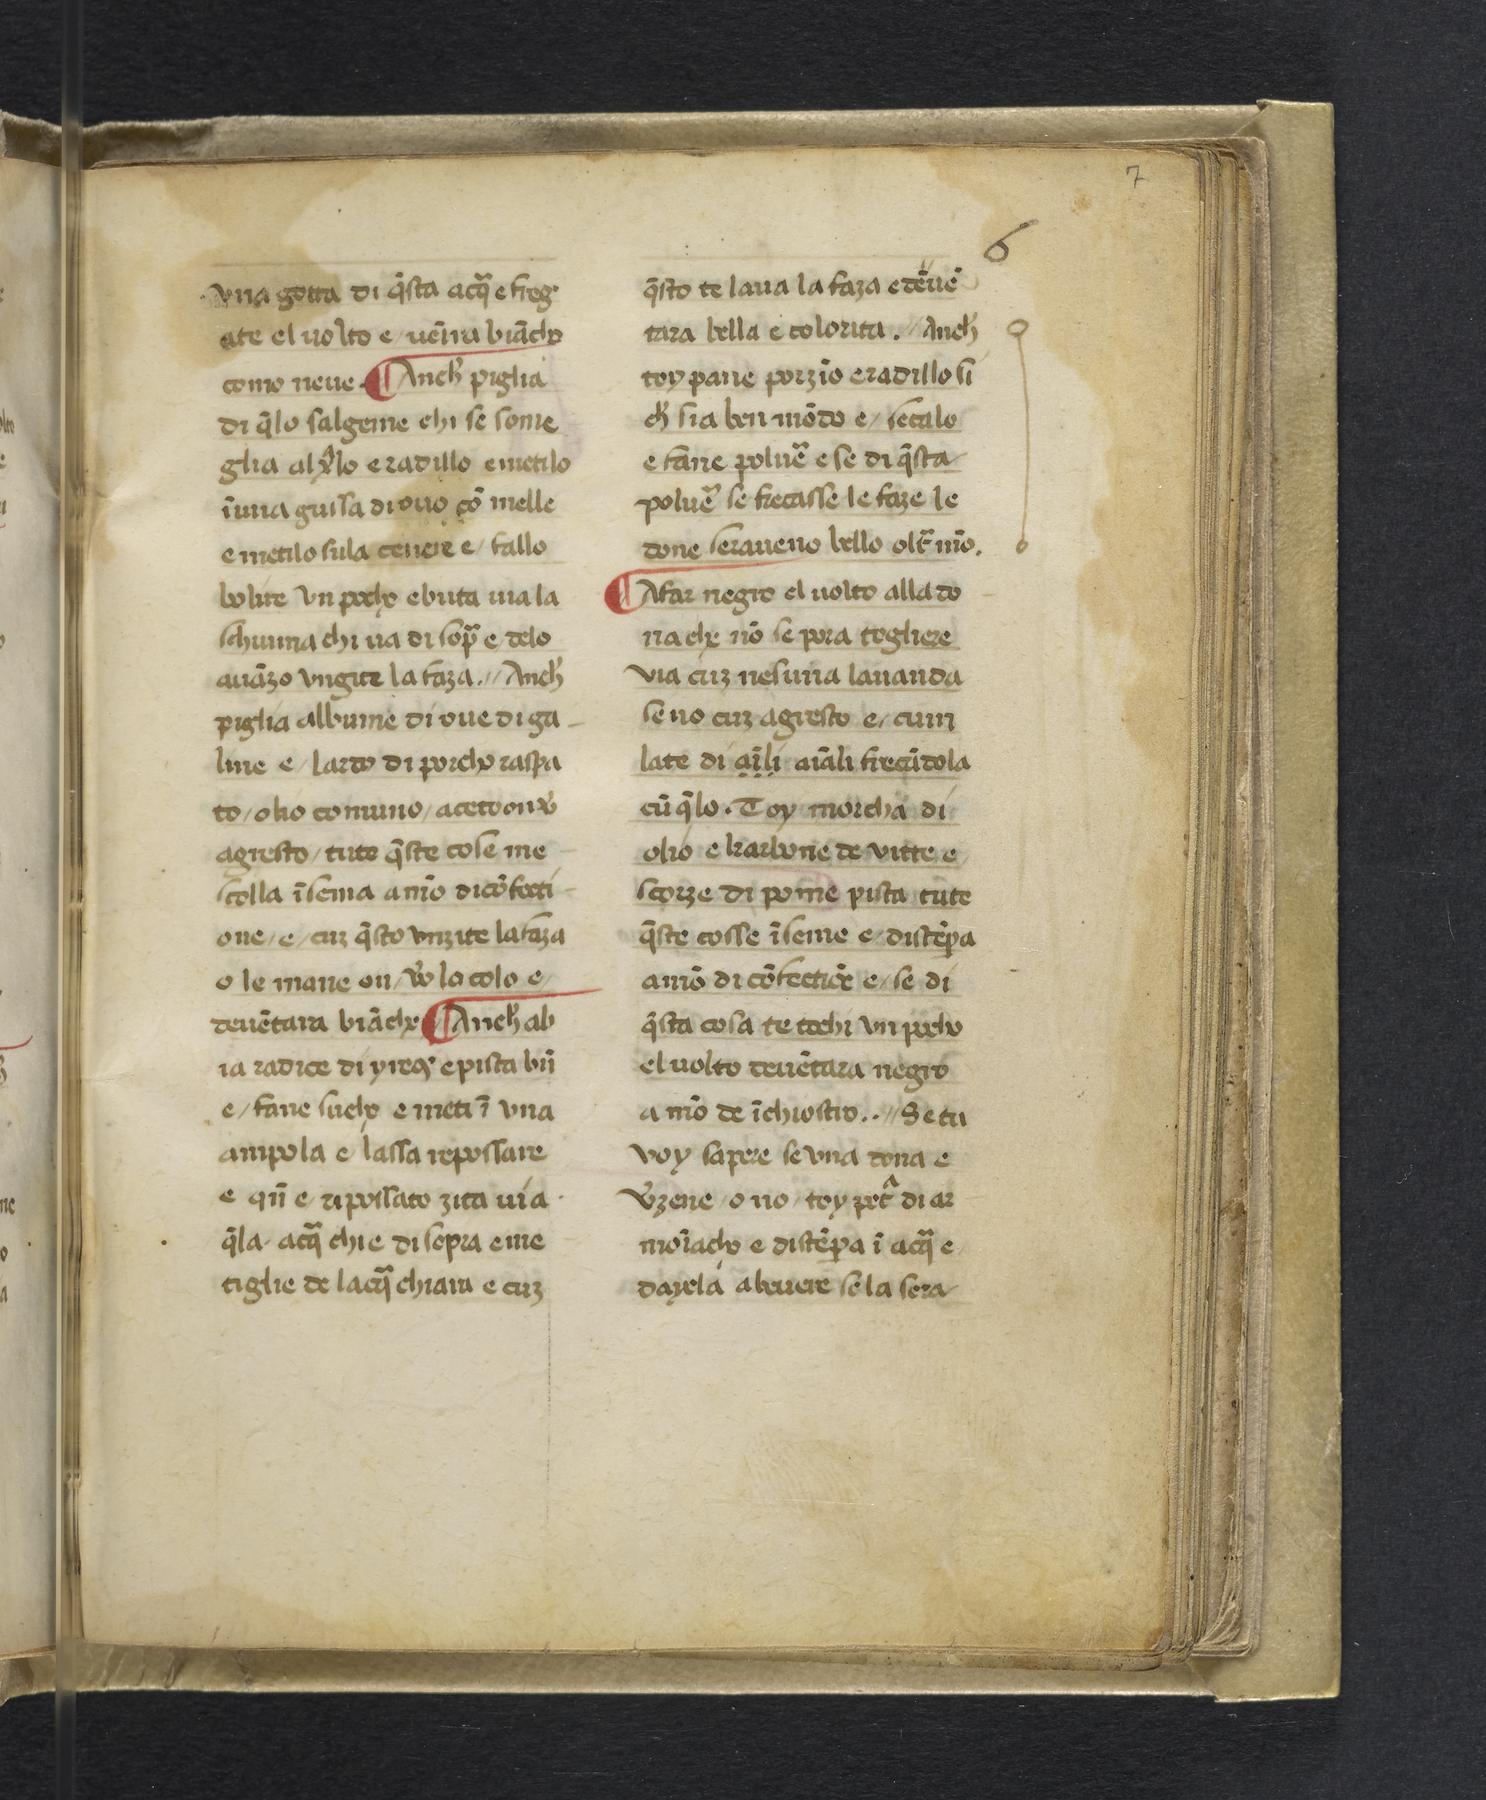 7
6
una gotta di q̄sta acq̄ e freg
ate el uolto e / uenira biācho
como neue. ¶ Anch̄ piglia
di q̄lo salgeme chi se some
glia al ṽlo e radillo e metilo
ī una gussa di ouo cō melle
e metilo sula cenere e / fallo
bolire un pocho e buta uia la
schuma chi ua di sop̄ e / delo
auāzo ungite la faza. // Anch̄
piglia albume di oue di ga
line e / lardo di porcho raspa
to / olio comuno / aceto on ṽ
agresto / tute q̄ste cose me
scolla īsema a mō di cōfecti
one / e / cuz q̄sto unzite la faza
o le mane on / ṽo lo colo e /
deuētara biāche ¶ Anch̄ ab
ia radice di yreos e pista bn̄
e / fane sucho e meti ī una
ampola e lassa repossare
e qn̄ e / ripossato zita uia
q̄la acq̄ chi e di sopra e me
tiglie de lacq̄ chiara e cuz
q̄sto te laua la faza e deuē
tara bella e colorita. // Anch̄
toy pane porzīo e radillo si
ch̄ sia ben mōdo e / secalo
e fane poluē e se di q̄sta
poluē se frecasse le faze le
done seraueno bello olt̄ mō.
¶ A far negro el uolto alla do
na che nō se pora togliere
uia cuz nesuna lauanda
se no cuz agresto e / cum
late di aīli aīali frecādola
cū q̄lo. Toy morcha di
olio e karbone de uitte e /
scorze di pome pista tute
q̄ste cosse īseme e / distēpa
a mō di cōfectiōe e / se di
q̄sta cosa te tochi un pocho
el uolto deuētara negro
a mō de īchiostro.. // Se tu
uoy sapere se una dona e
ṽzene / o no / toy pet̄ di ar
moīacho e distēpa ī acq̄ e
dayela a beuere se la sera